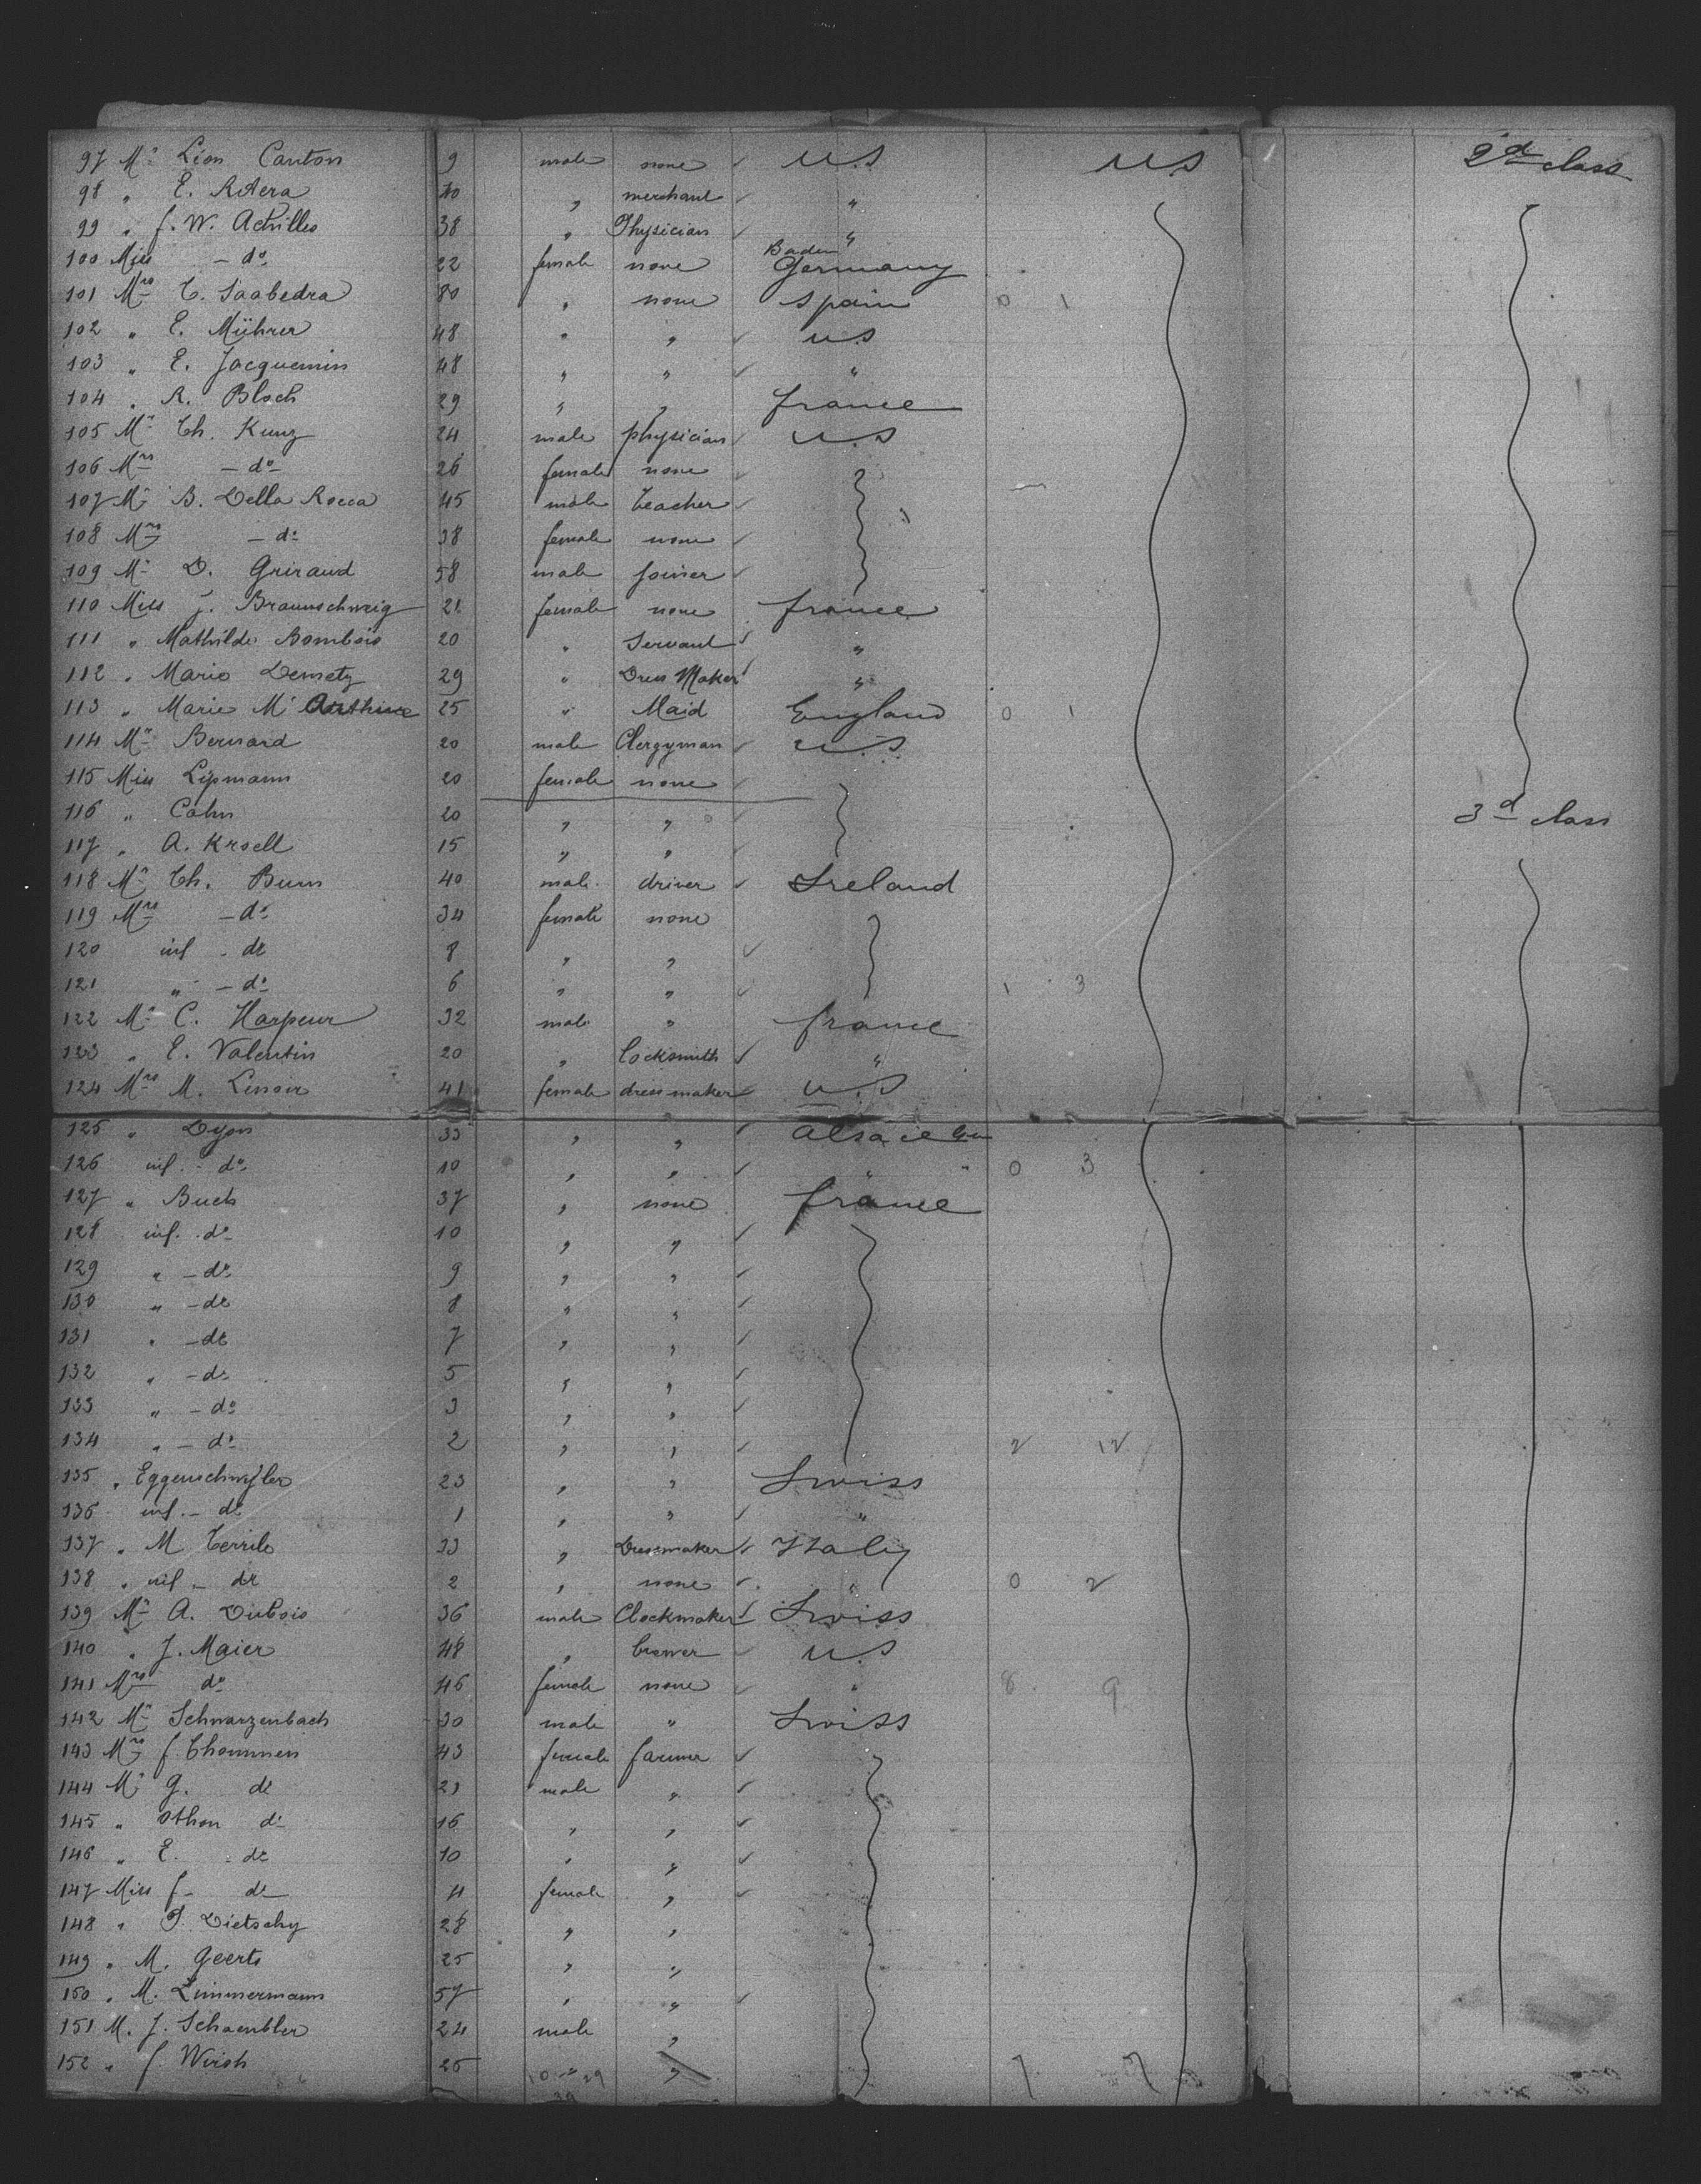 97 Mr Léon Canton 9 male none U.S U.S 2d class
98 " E. Ritera 40 " merchant "
99 " f. W. Achilles 38 " Physician "
100 Miss - do 22 female none Baden Germany
101 Mrs C. Saabedra 80 " none Spain 0 1
102 " E. Mührer 48 " " U.S
103 " E. Jacquemin 48 " " "
104 " R. Bloch 29 " " france
105 Mr Th. Kunz 24 male physician U.S
106 Mrs - do - 26 female none
107 Mr B. Della Rocca 45 male teacher
108 Mrs - do 38 female none
109 Mr D. Griraud 58 male joiner
110 Miss J. Braunschweig 21 female none france
111 " Mathilde Bombois 20 " Servant "
112 " Marie Demetz 29 " Dress Maker "
113 " Marie Mc Arthur 25 " Maid England 0 1
114 Mr Bernard 20 male Clergyman U.S
115 Miss Lipmann 20 female none
116 " Cahn 20 " " 3d class
117 " A. Kroell 15 " "
118 Mr Th. Burn 40 male driver Ireland
119 Mrs - do 34 female none
120 inf - do 8 " "
121 " - do 6 " " 1 3
122 Mr C. Harpeur 32 male " france
123 " E. Valentin 20 " locksmith "
124 Mrs M. Lenoir 41 female dressmaker U.S
125 " Dyon 33 " " Alsace
126 inf. - do 10 " " " 0 3
127 " Buch 37 " none france
128 inf. do 10 " "
129 " - do 9 " "
130 " - do 8 " "
131 " - do 7 " "
132 " - do 5 " "
133 " - do 3 " "
134 " - do 2 " " 2 12
135 " Eggenschwyler 23 " " Swiss
136 inf. - do 1 " " "
137 " M Terrile 33 " Dressmaker Italy
138 " inf - do 2 " none " 0 2
139 Mr A. Dubois 36 male Clockmaker Swiss
140 " J. Maier 48 " brewer U.S
141 Mrs do 46 female none " 8 9
142 Mr Schwarzenbach 30 male " Swiss
143 Mrs f. Thommen 43 female farmer
144 Mr G. do 21 male "
145 " Othon do 16 " "
146 " E. - do 10 " "
147 Miss f - do 4 female "
148 " P. Dietschy 28 " "
149 " M. Geerts 25 " "
150 " M. Zimmermann 57 " "
151 M. J. Schaenbler 24 male "
152 " f. Wirsh 26 " "